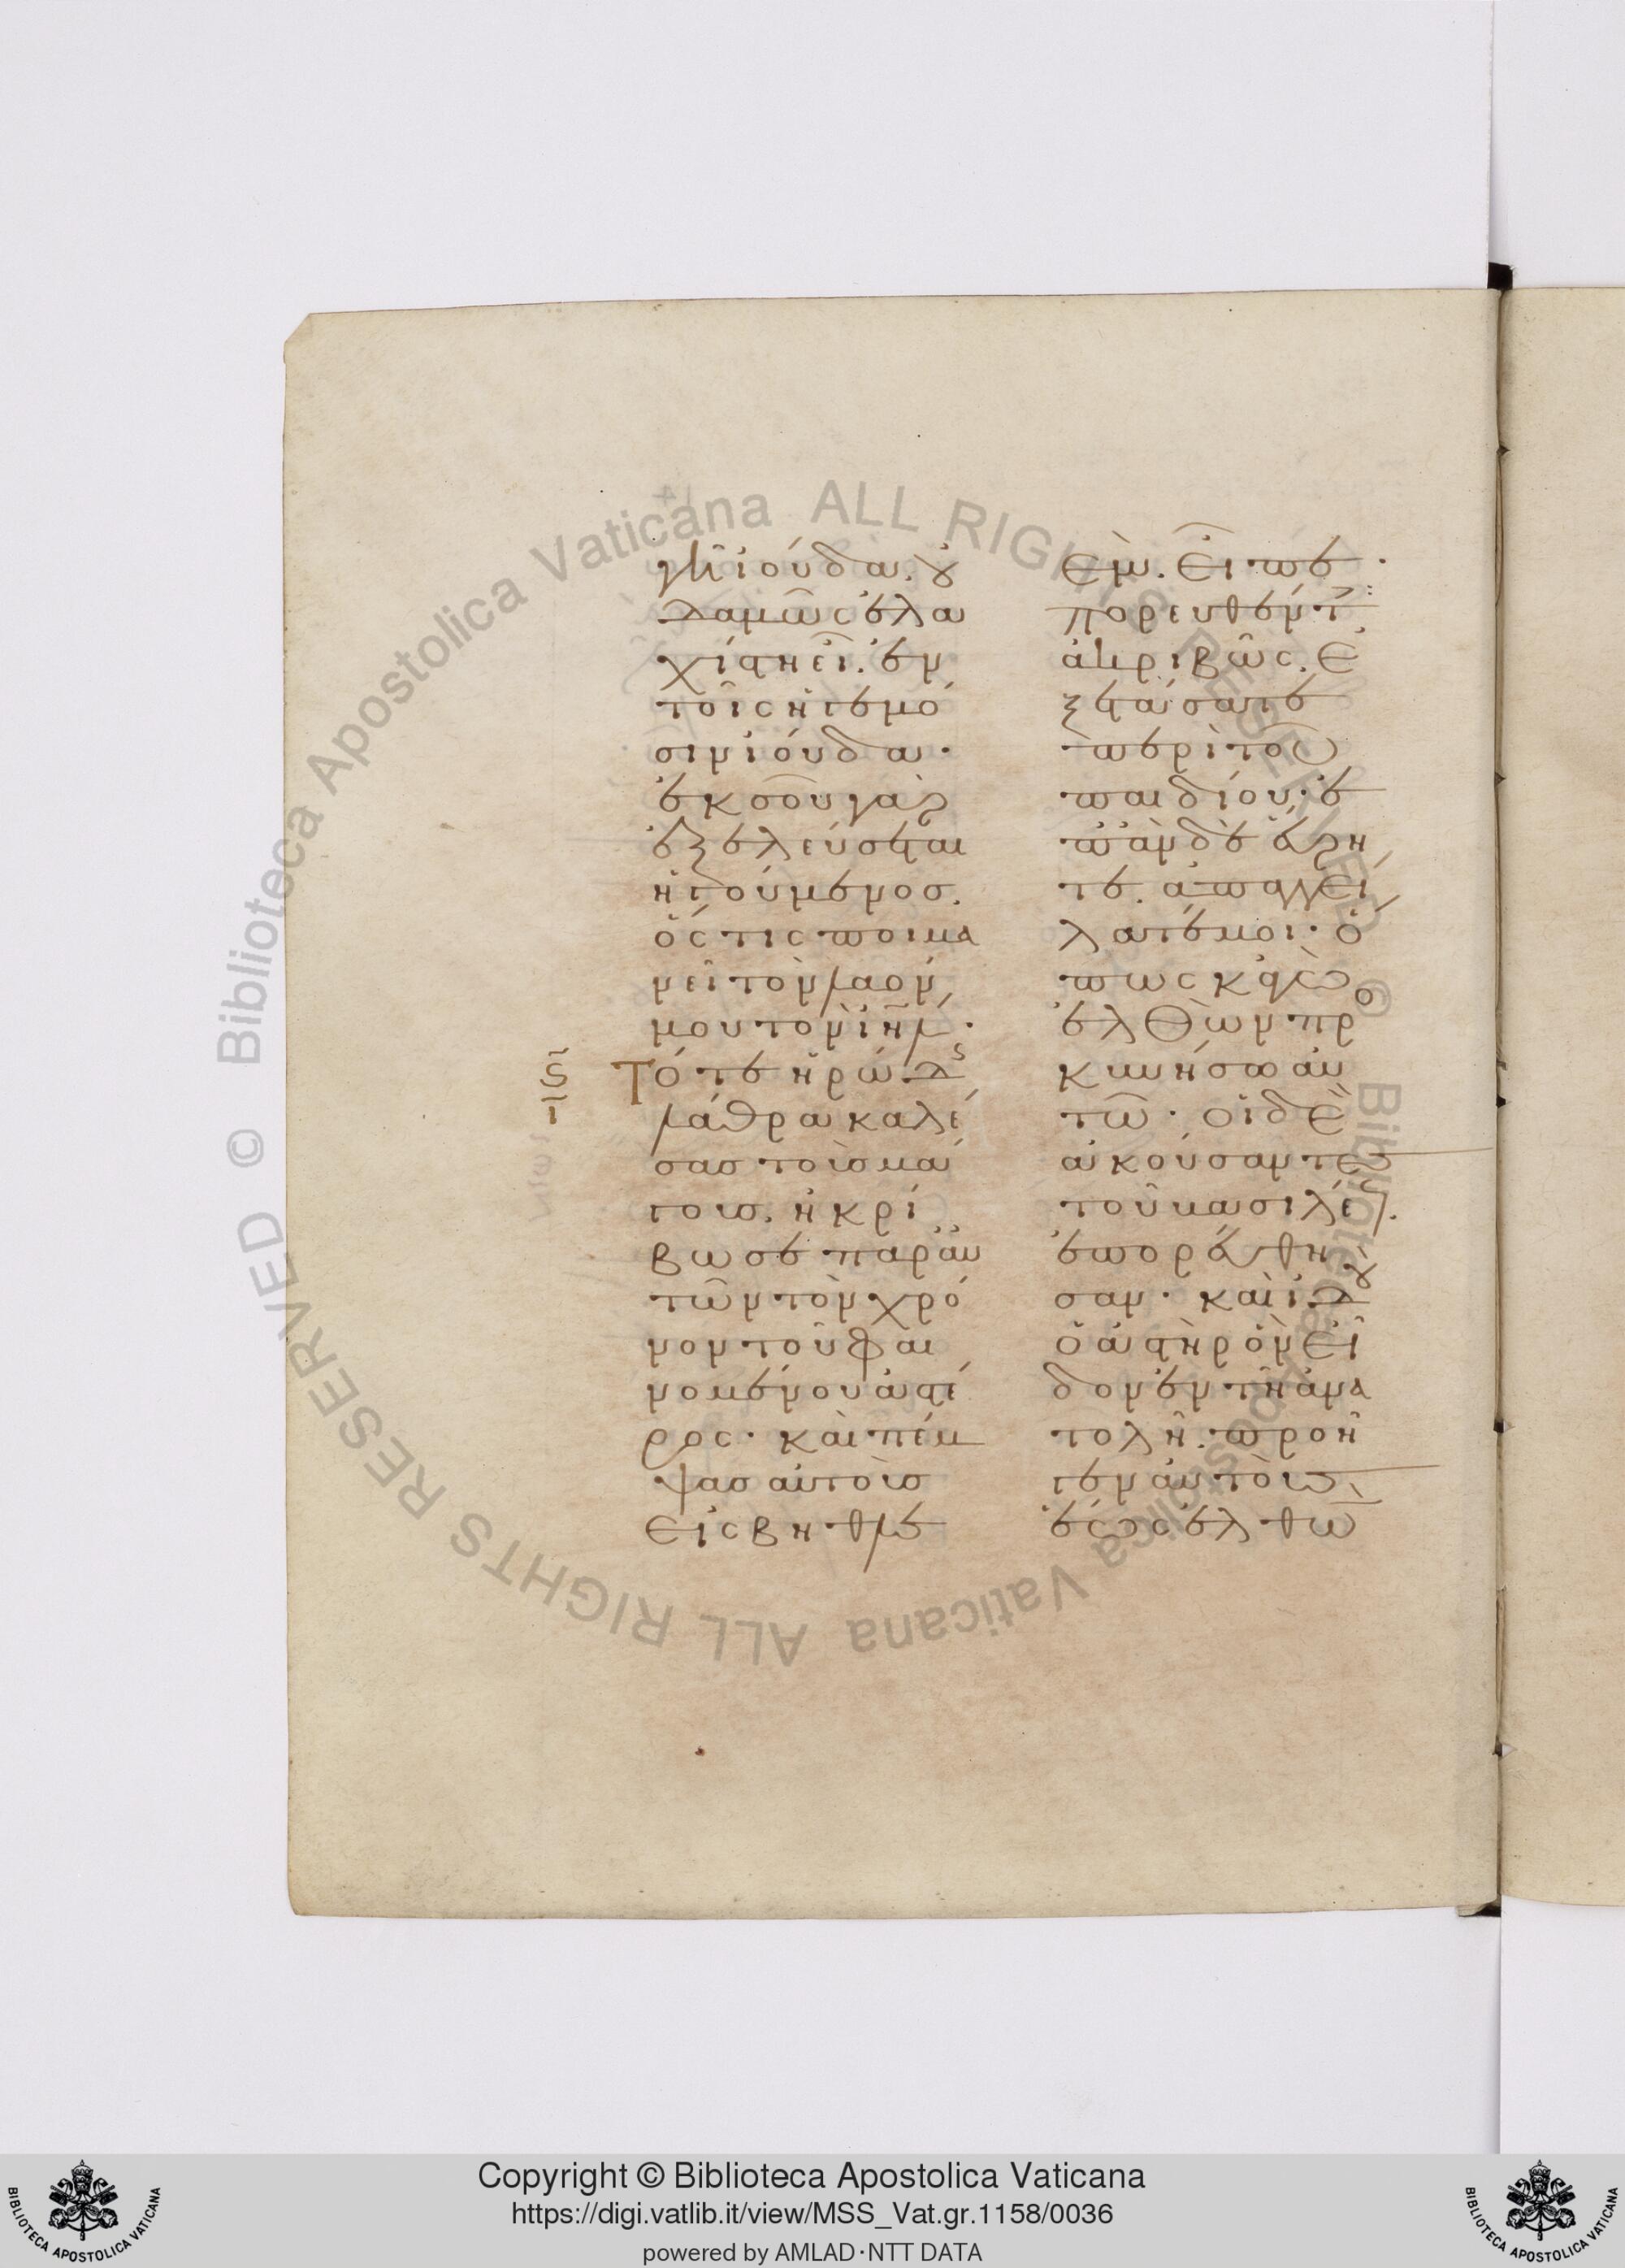 γῆ ἰούδα. οὐ
δαμῶς ἐλα
χίστη εἶ. ἐν
τοῖς ἡγεμό
σιν ἰούδα·
ἐκ σοῦ γὰρ
ἐξελεύσεται
ἡγούμενος.
ὅς τις ποιμα
νεῖ τὸν λαόν
μου τὸν ἰηλ·
ς
ι
Τότε ἡρώδς
λάθρα καλέ
σας τοὺς μά
γους. ἠκρί
βωσε παρ' αὐ
τῶν τὸν χρό
νον τοῦ φαι
νομένου ἀστέ
ρος· καὶ πέμ
ψας αὐτοὺς
εἰς βηθλε
ὲμ. εἶπε·
πορευθέντ
ἀκριβῶς. ἐ
ξετάσατε
περὶ τοῦ
παιδίου· ἐ
πὰν δὲ εὕρη
τε. ἀπαγγεί
λατέ μοι· ὅ
πως κἀγὼ
ἐλθὼν προ
κυνήσω αὐ
τῶ· οἱ δὲ
ἀκούσαντες
τοῦ βασιλέως.
ἐπορεύθη
σαν· καὶ ἰδοὺ
ὁ ἀστὴρ ὃν εἶ
δον ἐν τῆ ἀνα
τολῆ. προῆ
γεν αὐτοὺς,
ἕως ἐλθὼ
Copyright © Biblioteca Apostolica Vaticana
https://digi.vatlib.it/view/MSS_Vat.gr.1158/0036
powered by AMLAD·NTT DATA
Biblioteca Apostolica Vaticana ALL RIGHTS RESERVED ©
Biblioteca Apostolica Vaticana ALL RIGHTS RESERVED ©
BIBLIOTECA APOSTOLICA VATICANA
BIBLIOTECA APOSTOLICA VATICANA